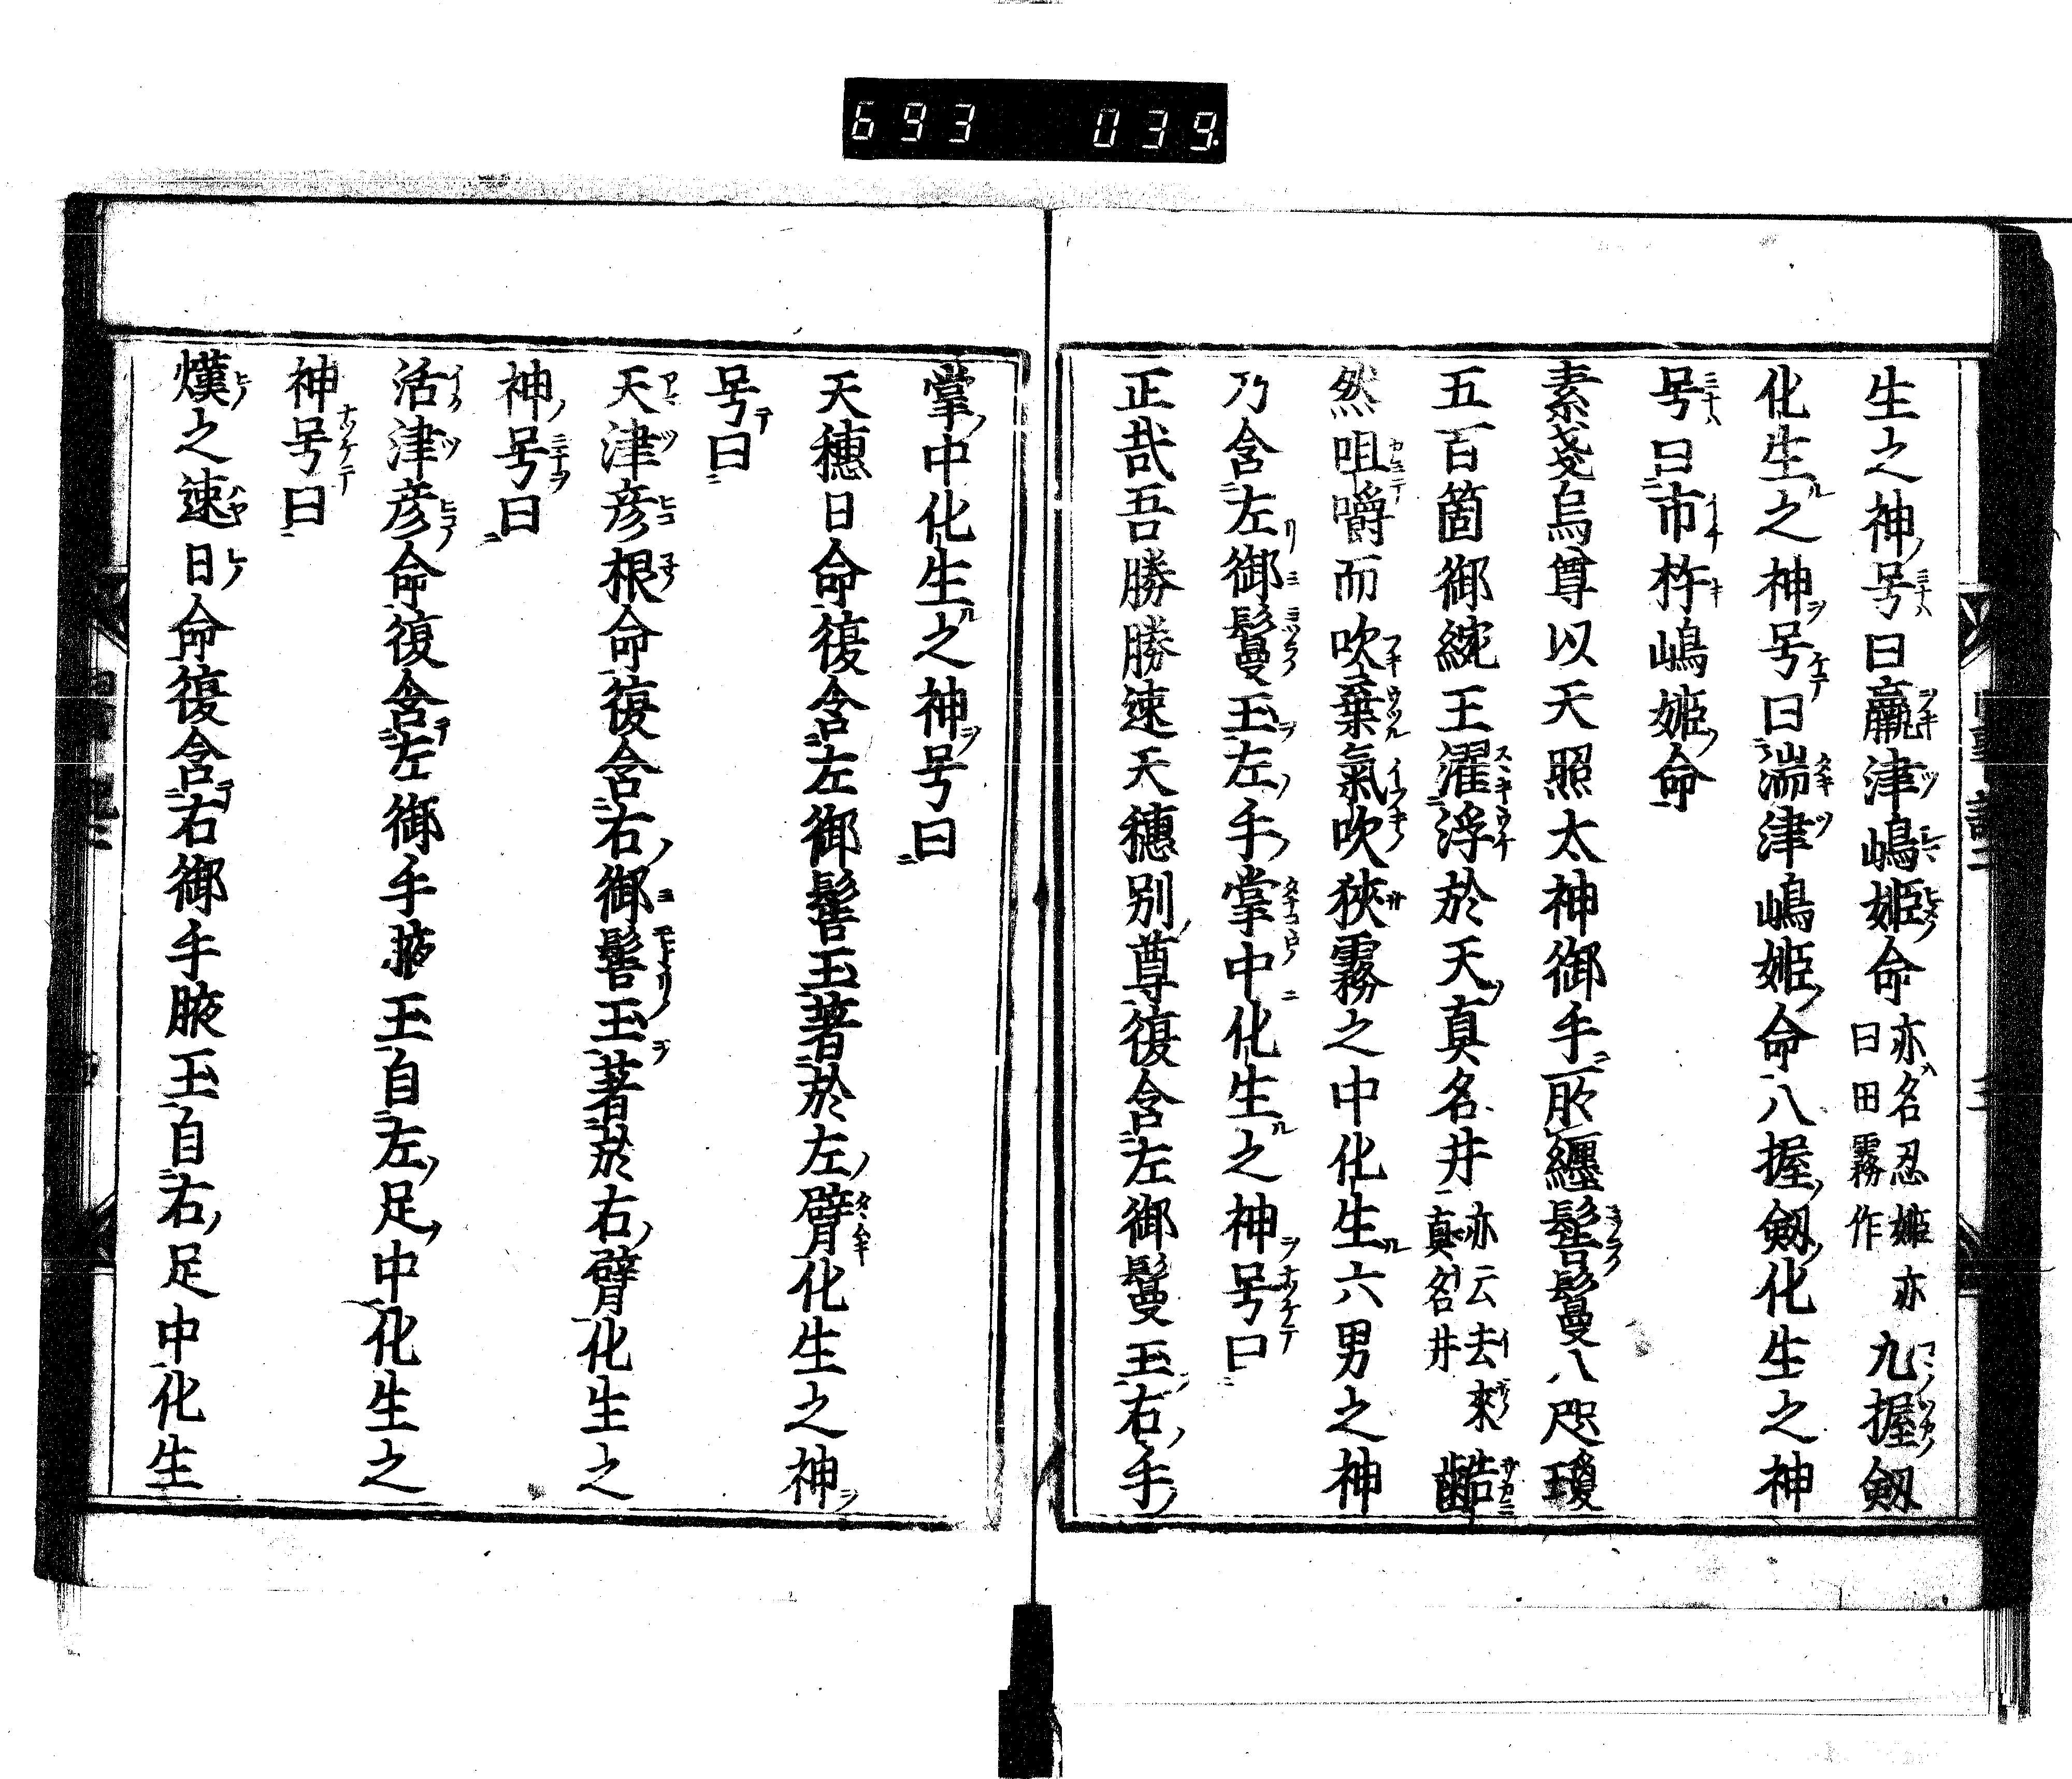 693 039
生之神号曰瀛津嶋姫命亦名忍姫亦曰田霧作九握劔
化生之神号曰湍津嶋姫命八握劔化生之神
号曰市杵嶋姫命
素戔烏尊以天照太神御手所纏髻鬘八咫瓊
五百箇御統王濯浮於天真名井亦云去來真名井齰
然咀嚼而吹棄氣吹狹霧之中化生六男之神
乃含左御鬘玉左手掌中化生之神号曰
正哉吾勝勝速天穗別尊復含左御鬘玉右手
掌中化生之神号曰
天穗日命復含左御髻玉著於左臂化生之神
号曰
天津彦根命復含右御髻玉著於右臂化生之
神号曰
活津彦命復含左御手腋玉自左足中化生之
神号曰
熯之速日命復含右御手腋玉自右足中化生